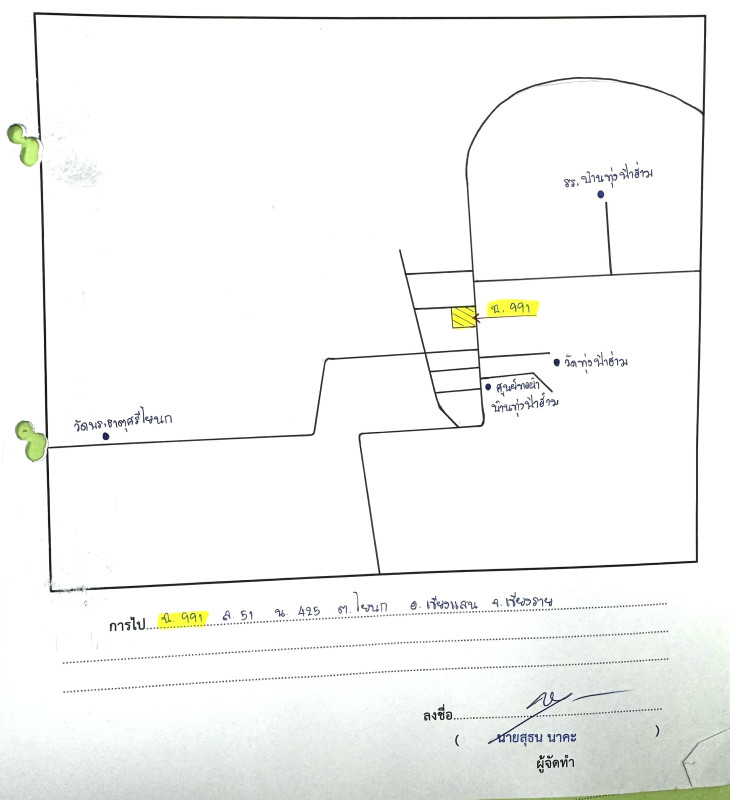 รร. บ้านทุ่งฟ้าฮ่าม
ฉ. 991
วัดทุ่งฟ้าฮ่าม
ศูนย์ทอผ้า
บ้านทุ่งฟ้าฮ่าม
วัดพระธาตุศรีโยนก
การไป ฉ. 991 ล 51 น 425 ต. โยนก อ. เชียงแสน จ. เชียงราย
ลงชื่อ
( นายสุธน นาคะ )
ผู้จัดทำ